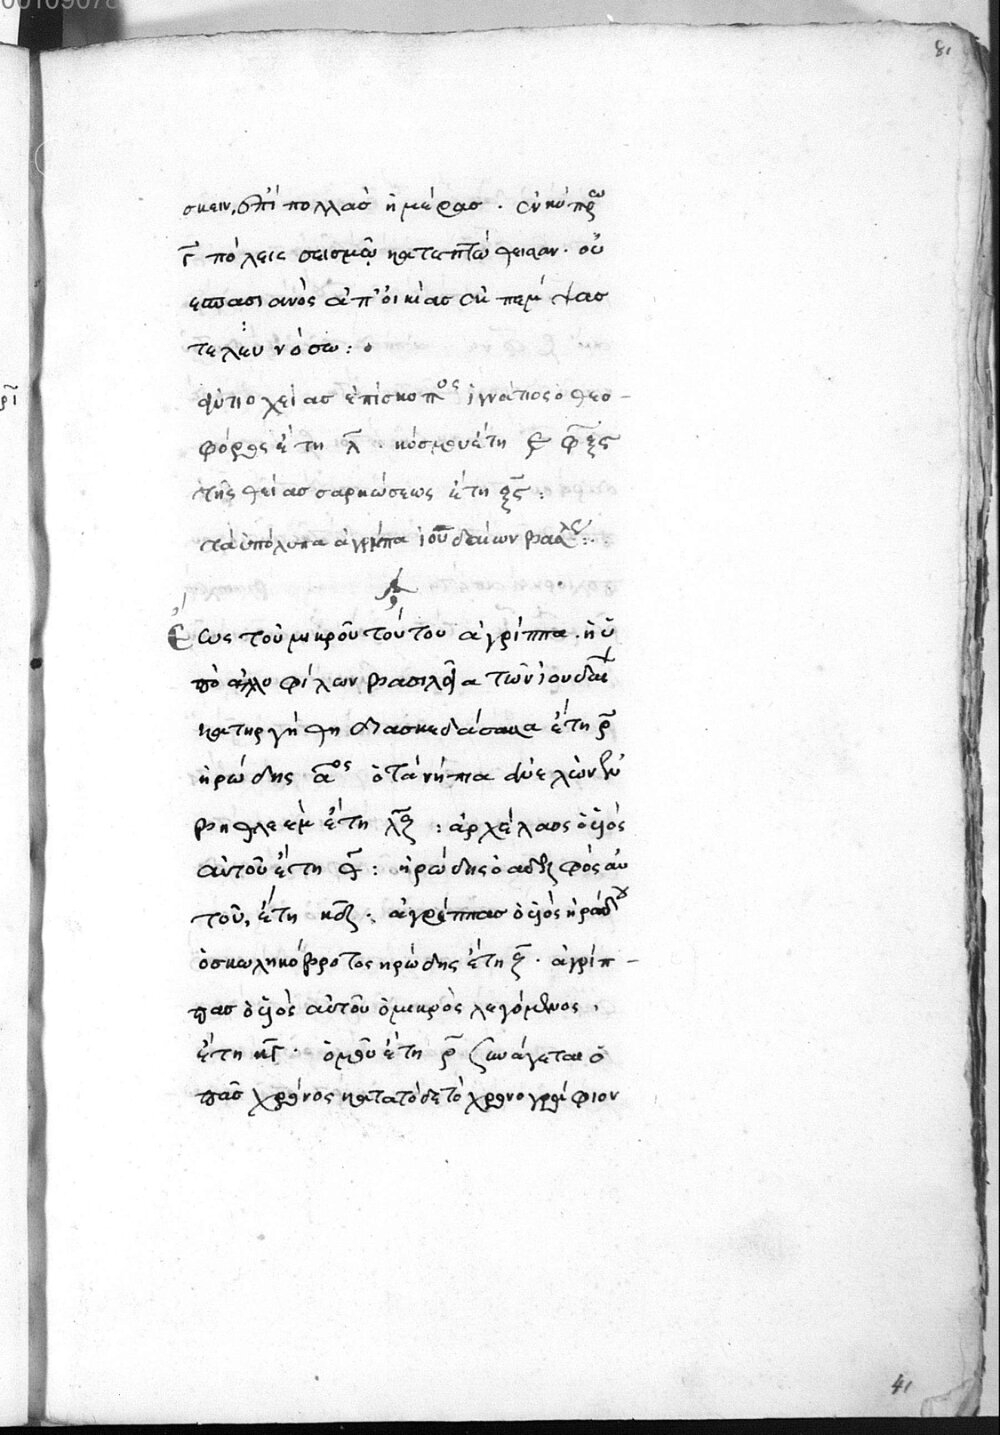 81
σκειν, ἐπὶ πολλὰσ ἡμέρασ . ἐν κύπρω
γ̄ πόλεις σεισμῶ κατεπτώθεισαν . οὐ
εσπασιανὸς ἀπ' οἰκίασ ἐκπεμψασ
τελευ νόσω : .
ἀντιοχείασ ἐπίσκοπος ἰγνάτιος ὁ θεο-
φόρος ἔτη λ̄ . κόσμου έτη ͵ε φ̄ξς
τῆς θείασ σαρκώσεως ἔτη ξς :
τὰ ὑπόλυπα ἀγρίππα ἰουδαίων
Ἕως τοῦ μικροῦ τούτου ἀγρίππα . ἡ ὑ
πὸ ἀλλοφίλων βασιλεία τῶν ἰουδαί
κατηργήθη διασκεδάσασα ἔτη ρ̄
ἡρώδης α̅ος ὁ τὰ νήπια ἀνελὼν ἐν
βηθλεὲμ ἔτη λ̅ζ : ἀρχέλαος ὁ υἱὸς
αὐτοῦ ἔτη θ̅ : ἡρώδης ὁ αδελφὸς αυ
τοῦ, ἔτη κδ . ἀγρίππασ ὁ υἱὸς ἡρώδου
ὁ σκωληκόβροτος ηρώδης ἔτη ζ̅ . ἀγρίπ-
πασ ὁ υἱὸς αὐτοῦ ὁ μικρὸς λεγόμενος ,
ἔτη κγ̅ . ὁμοῦ έτη ρ̅ συνάγεται ὁ
πᾶσ χρόνος κατὰ τόδε τὸ χρονογράφιον
41